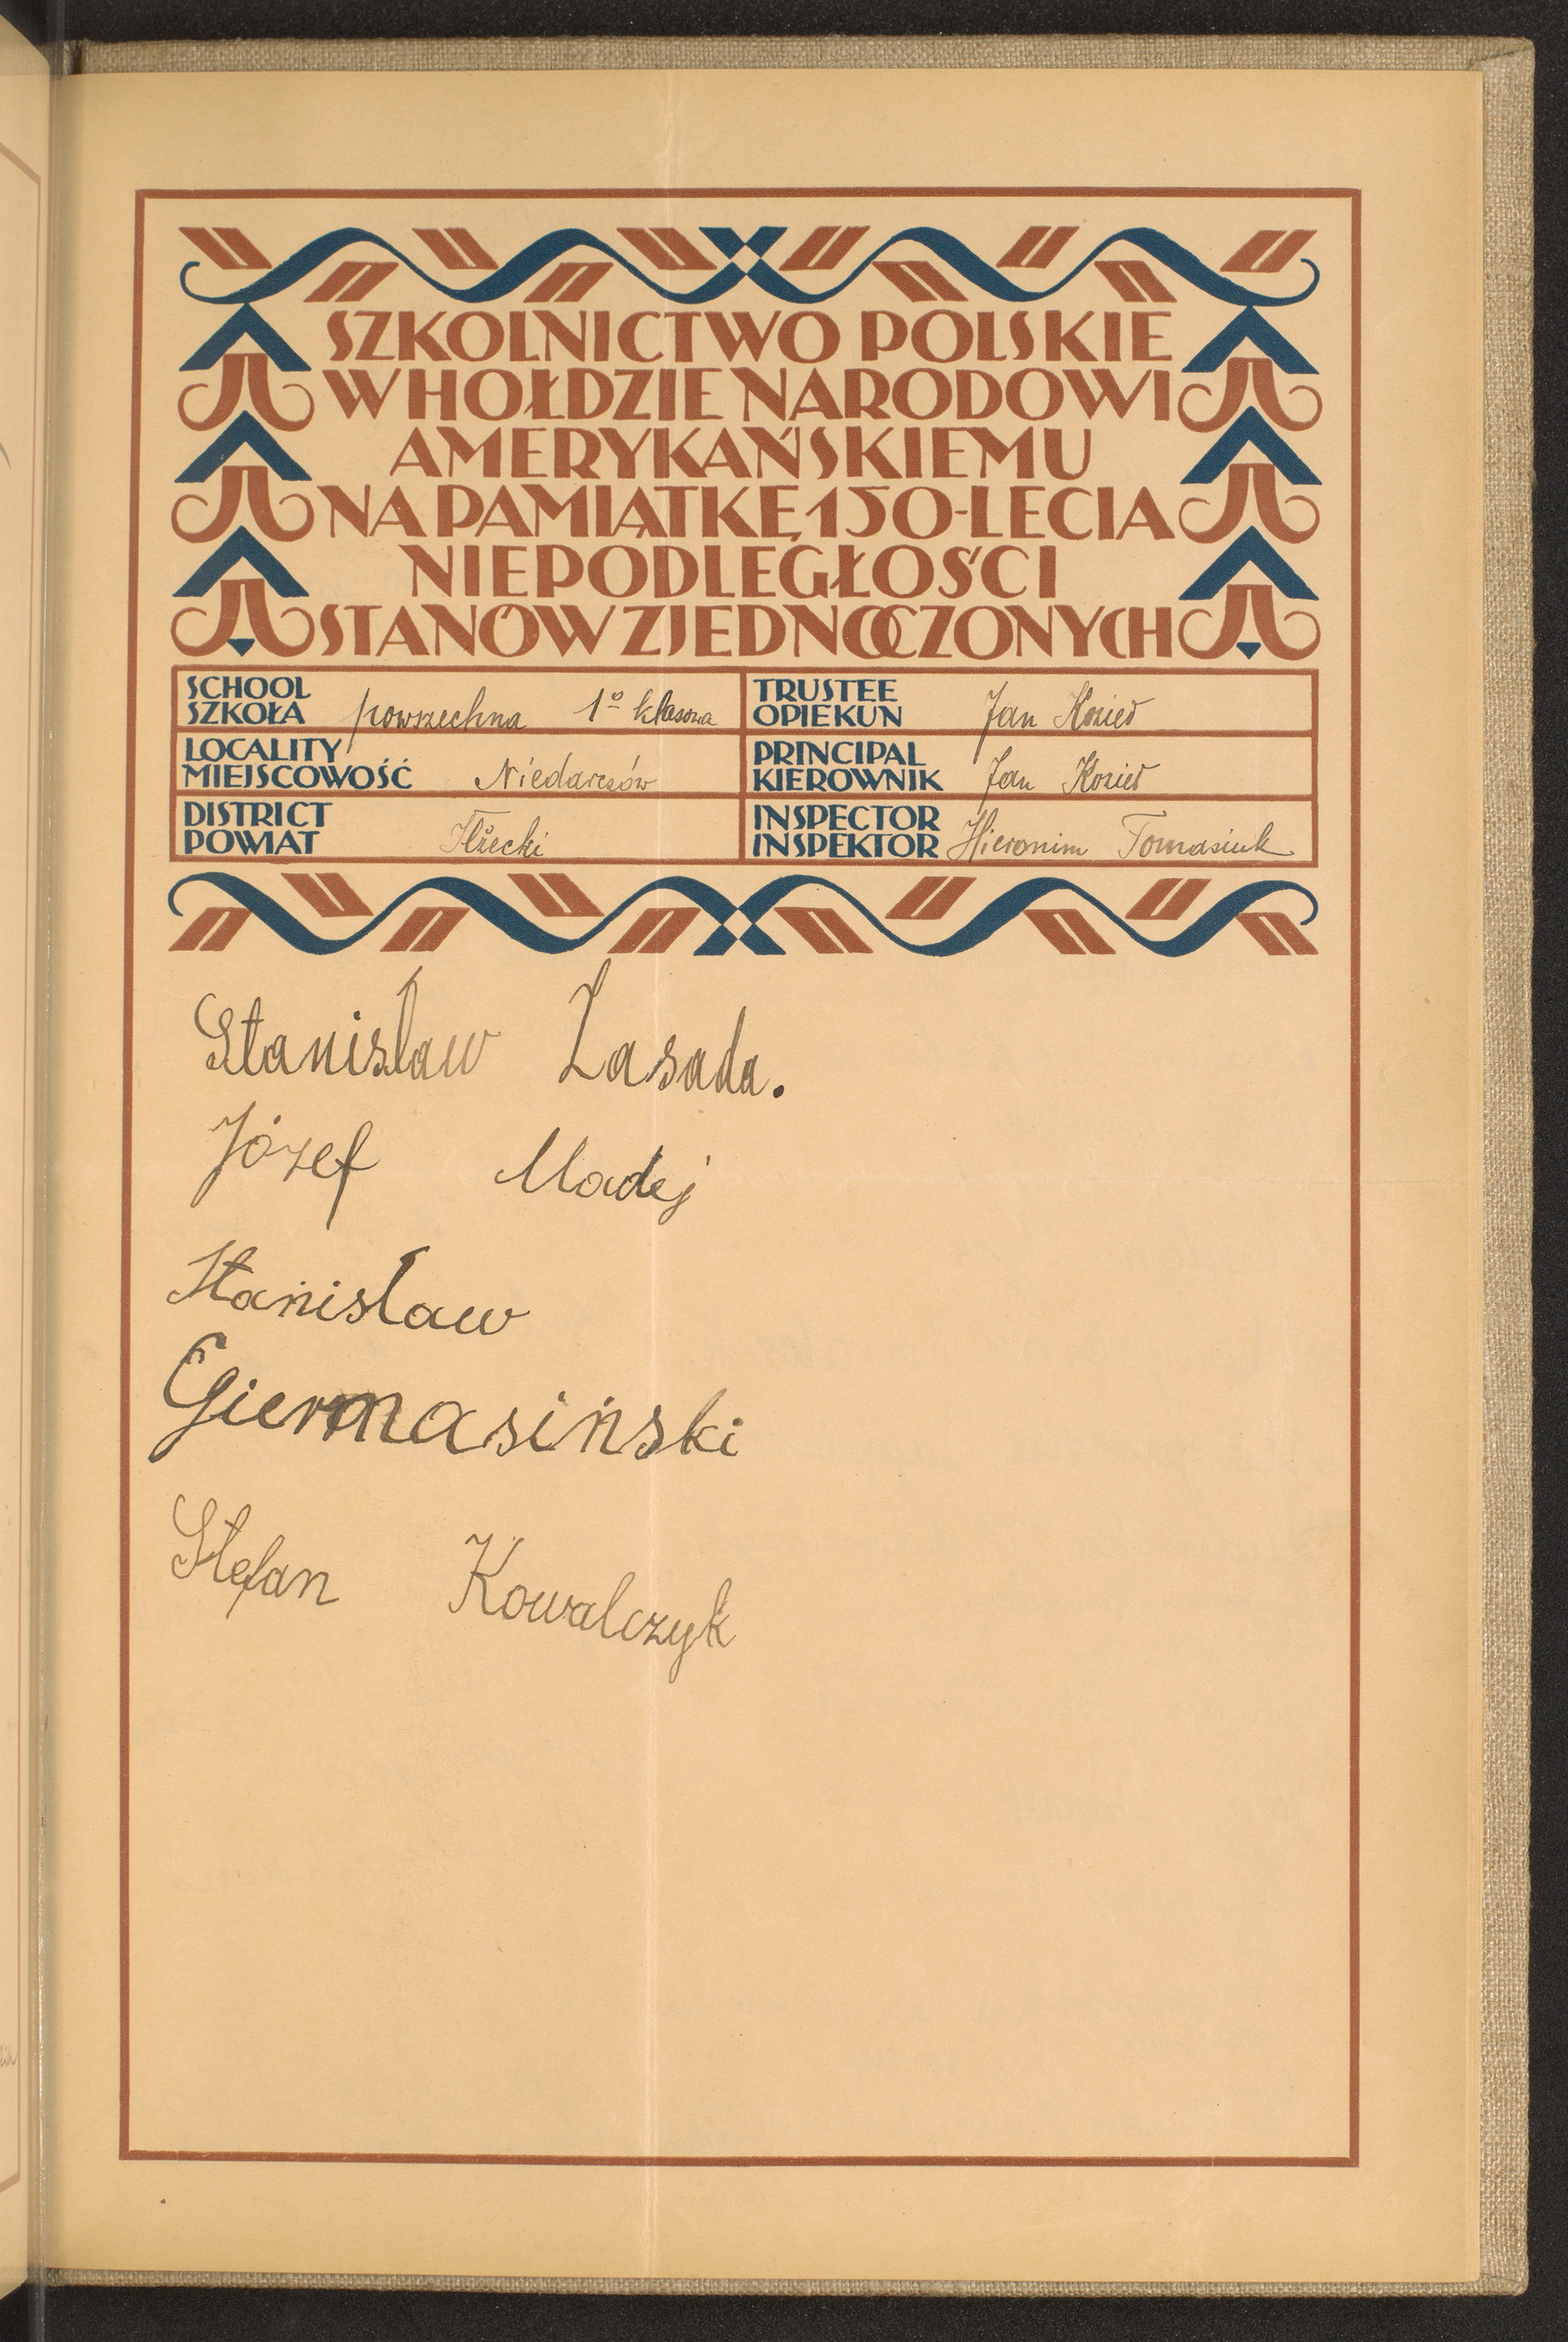 SZKOLNICTWO POLSKIE
W HOŁDZIE NARODOWI
AMERYKAŃSKIEMU
NA PAMIĄTKĘ 150-LECIA
NIEPODLEGŁOŚCI
STANÓW ZJEDNOCZONYCH
SCHOOL
SZKOŁA powszechna 1º klasowa
TRUSTEE
OPIEKUN Jan
LOCALITY
MIEJSCOWOŚĆ Niedarczów
PRINCIPAL
KIEROWNIK Jan
DISTRICT
POWIAT Iłżecki
INSPECTOR
INSPEKTOR Hieronim Tomasiuk
Stanisław Zasada.
Józef Madej
Stanisław
Giermasiński
Stefan Kowalczyk